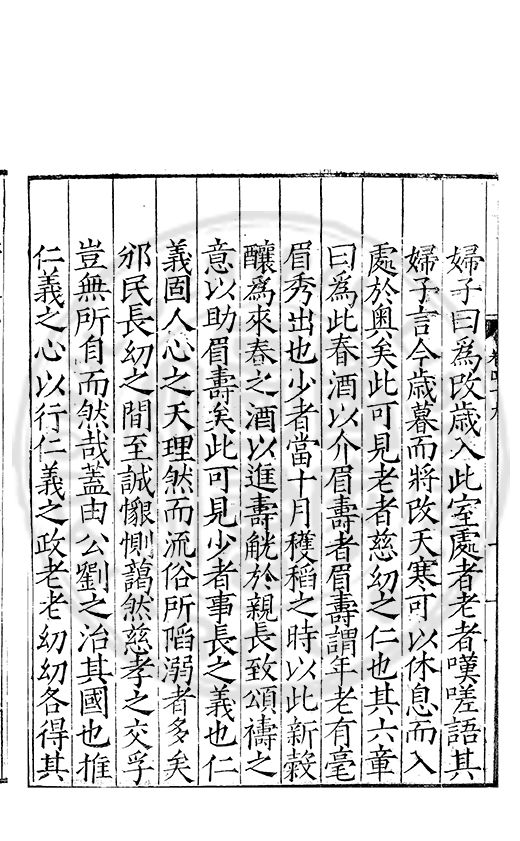 婦子曰為改歲入此室處者老者嘆嗟語其
婦子言今歲暮而將改天寒可以休息而入
處於奧矣此可見老者慈幼之仁也其六章
曰為此春酒以介眉壽者眉壽謂年老有毫
眉秀出也少者當十月穫稻之時以此新穀
釀為來春之酒以進壽觥於親長致頌禱之
意以助眉壽矣此可見少者事長之義也仁
義固人心之天理然而流俗所陷溺者多矣
邠民長幼之間至誠懷惻藹然慈孝之交孚
豈無所自而然哉蓋由公劉之治其國也推
仁義之心以行仁義之政老老幼幼各得其